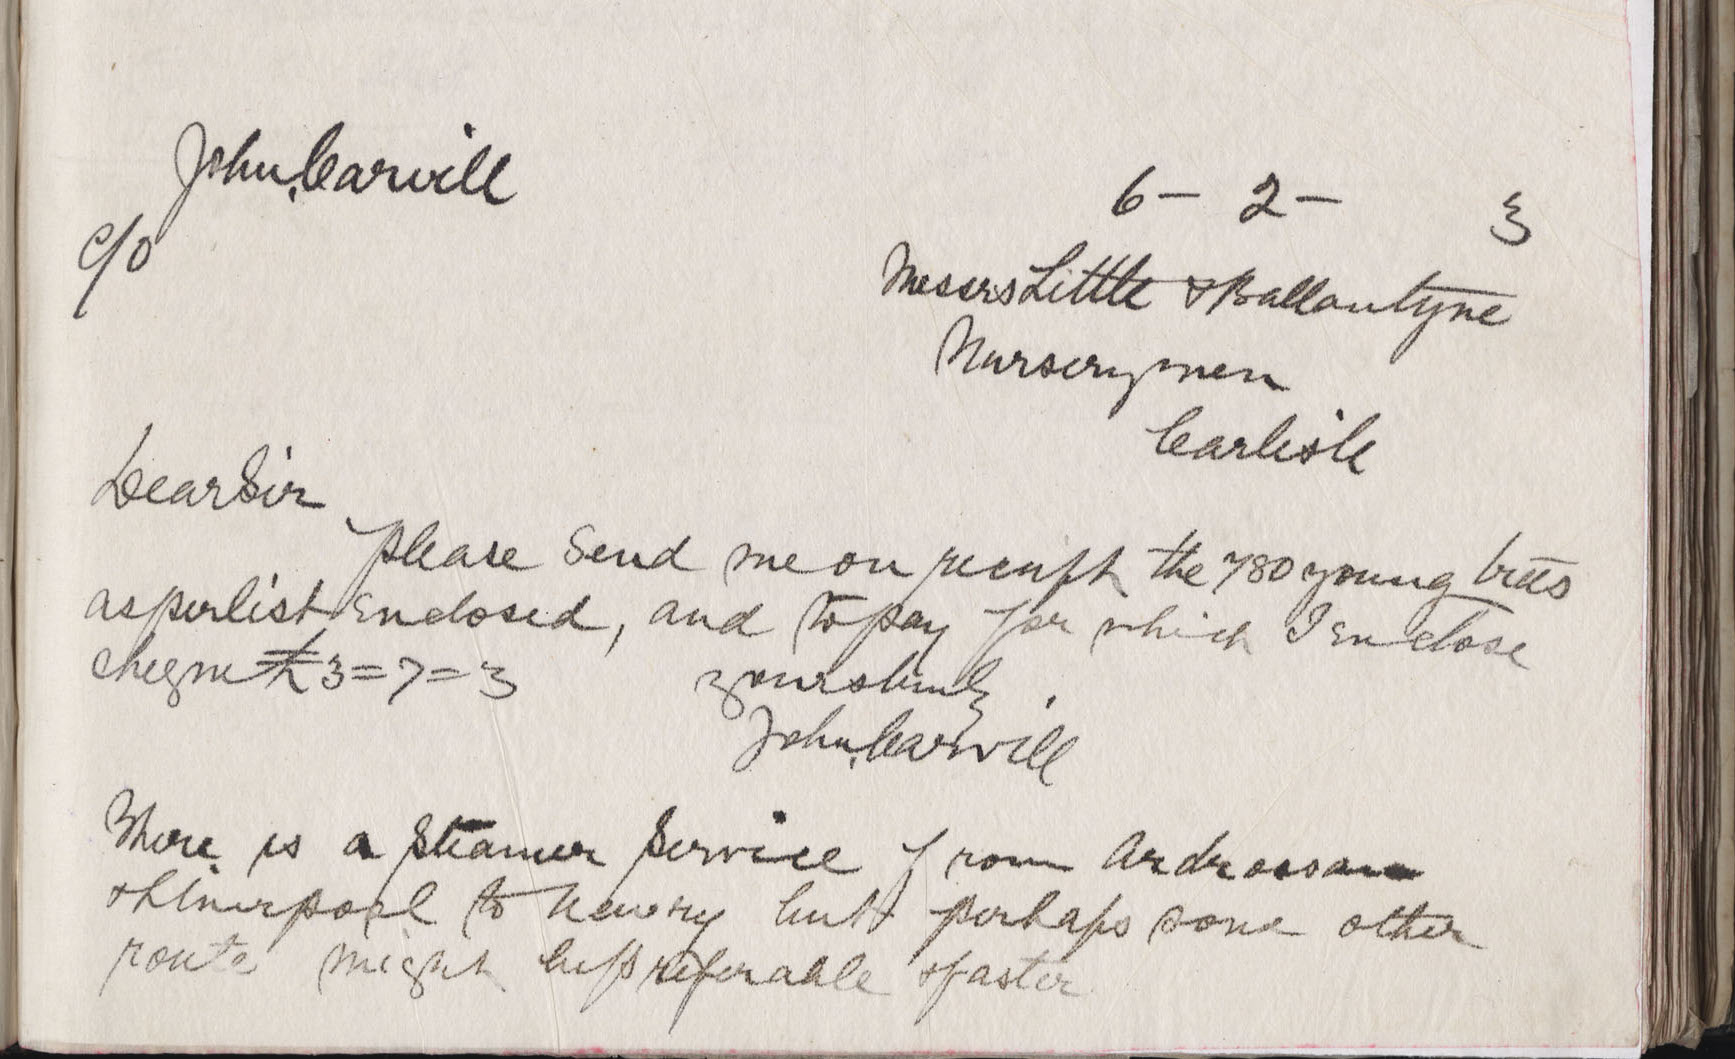 John Carvill
c/o
6 - 2 - 3
Messrs Little & Ballantyne
Nurserymen
Carlisle
Dear Sir
please send me on receipt the 780 young trees
as per list enclosed, and to pay for which I enclose
cheque £3=7=3
yours truly
John Carvill
There is a steamer service from Ardrossan
& Liverpool to Newry but perhaps some other
route might be preferable & faster